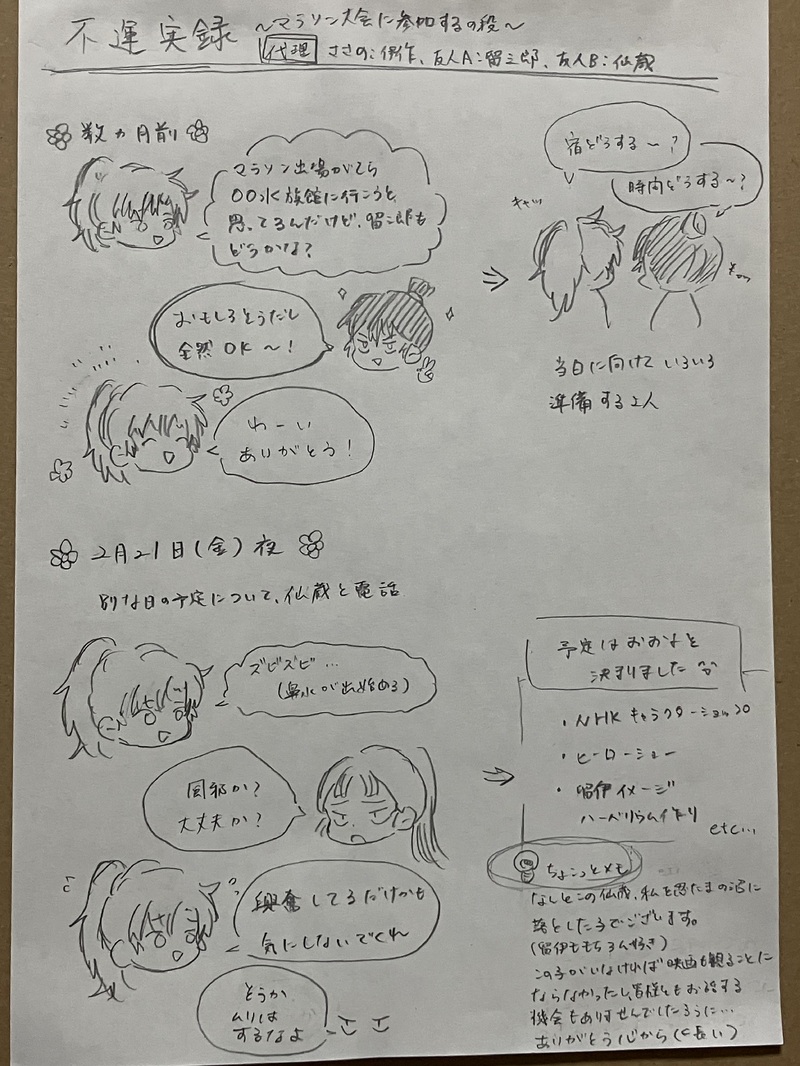 不運実録 ～マラソン大会に参加するの役～
代理 ささの:伊作、友人A:留三郎、友人B:仙蔵
数ヵ月前
マラソン出場がてら
〇〇水族館に行こうと
思ってるんだけど、留三郎も
どうかな?
おもしろそうだし
全然OK～!
わーい
ありがとう!
宿どうする～?
時間どうする～?
キャッ
当日に向けていろいろ
準備する2人
2月21日(金)夜
別な日の予定について、仙蔵と電話
ズビズビ…
(鼻水が出始める)
風邪か?
大丈夫か?
興奮してるだけかも
気にしないでくれ
そうか
ムリは
するなよ
予定はおおよそ
決まりました
・NHKキャラクターショップ
・ヒーローショー
・留伊イメージ
ハーバリウム作り
etc…
ちょこっとメモ
この仙蔵、私を忍たまの沼に
落とした子でございます。
(留伊ももちろん好き)
この子がいなければ映画も観ることに
ならなかったし、皆様ともお話する
機会もありませんでしたろうに…
ありがとう心から(←長い)